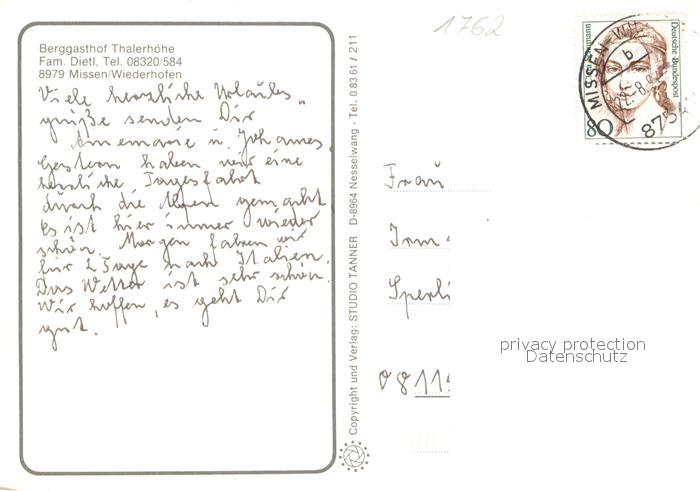 Berggasthof Thalerhöhe
Fam. Dietl, Tel. 08320/584
8979 Missen/Wiederhofen
Viele herzliche Urlaubs-
grüße senden Dir
Annemarie u. Johannes
Gestern haben wir eine
herrliche Tagesfahrt
durch die Alpen gemacht
Es ist hier immer wieder
schön. Morgen fahren wir
für 2 Tage nach Italien.
Das Wetter ist sehr schön.
Wir hoffen, es geht Dir
gut.
Copyright und Verlag: STUDIO TANNER D-8964 Nesselwang · Tel. 0 83 61 / 211
1762
Deutsche Bundespost
80
MISSEN-WI
b
8975
Frau
Irm
Sperli
0811
privacy protection
Datenschutz